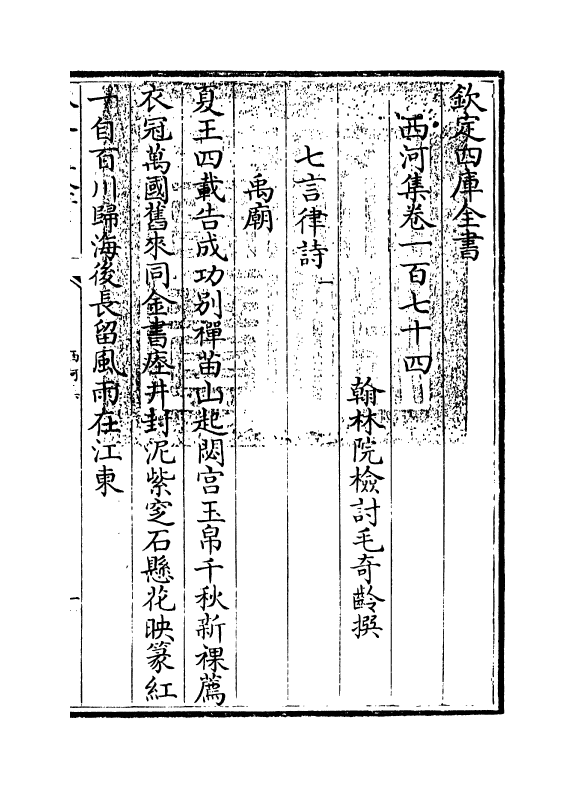 欽定四庫全書
西河集卷一百七十四
翰林院檢討毛奇齡撰
七言律詩一
禹廟
夏王四載告成功別禪苗山起閟宫玉帛千秋新裸薦
衣冠萬國舊來同金書瘞井封泥紫窆石懸花映篆紅
一自百川歸海後長留風雨在江東
西河
一